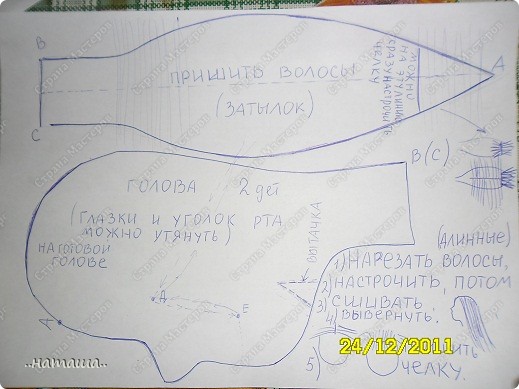 В
С
А
ПРИШИТЬ ВОЛОСЫ
(ЗАТЫЛОК)
МОЖНО
НА ЭТУ ЛИНИЮ
СРАЗУ НАСТРОЧИТЬ
ЧЕЛКУ
ГОЛОВА 2 дет
(ГЛАЗКИ И УГОЛОК РТА
МОЖНО УТЯНУТЬ)
НА ГОТОВОЙ
ГОЛОВЕ
В(С)
ВЫТАЧКА
А
Д
Е
(ДЛИННЫЕ)
1) НАРЕЗАТЬ ВОЛОСЫ,
2) НАСТРОЧИТЬ, ПОТОМ
3) СШИВАТЬ.
4) ВЫВЕРНУТЬ.
5)
ЧЕЛКУ.
24/12/2011
..наташа..
Страна Мастеров